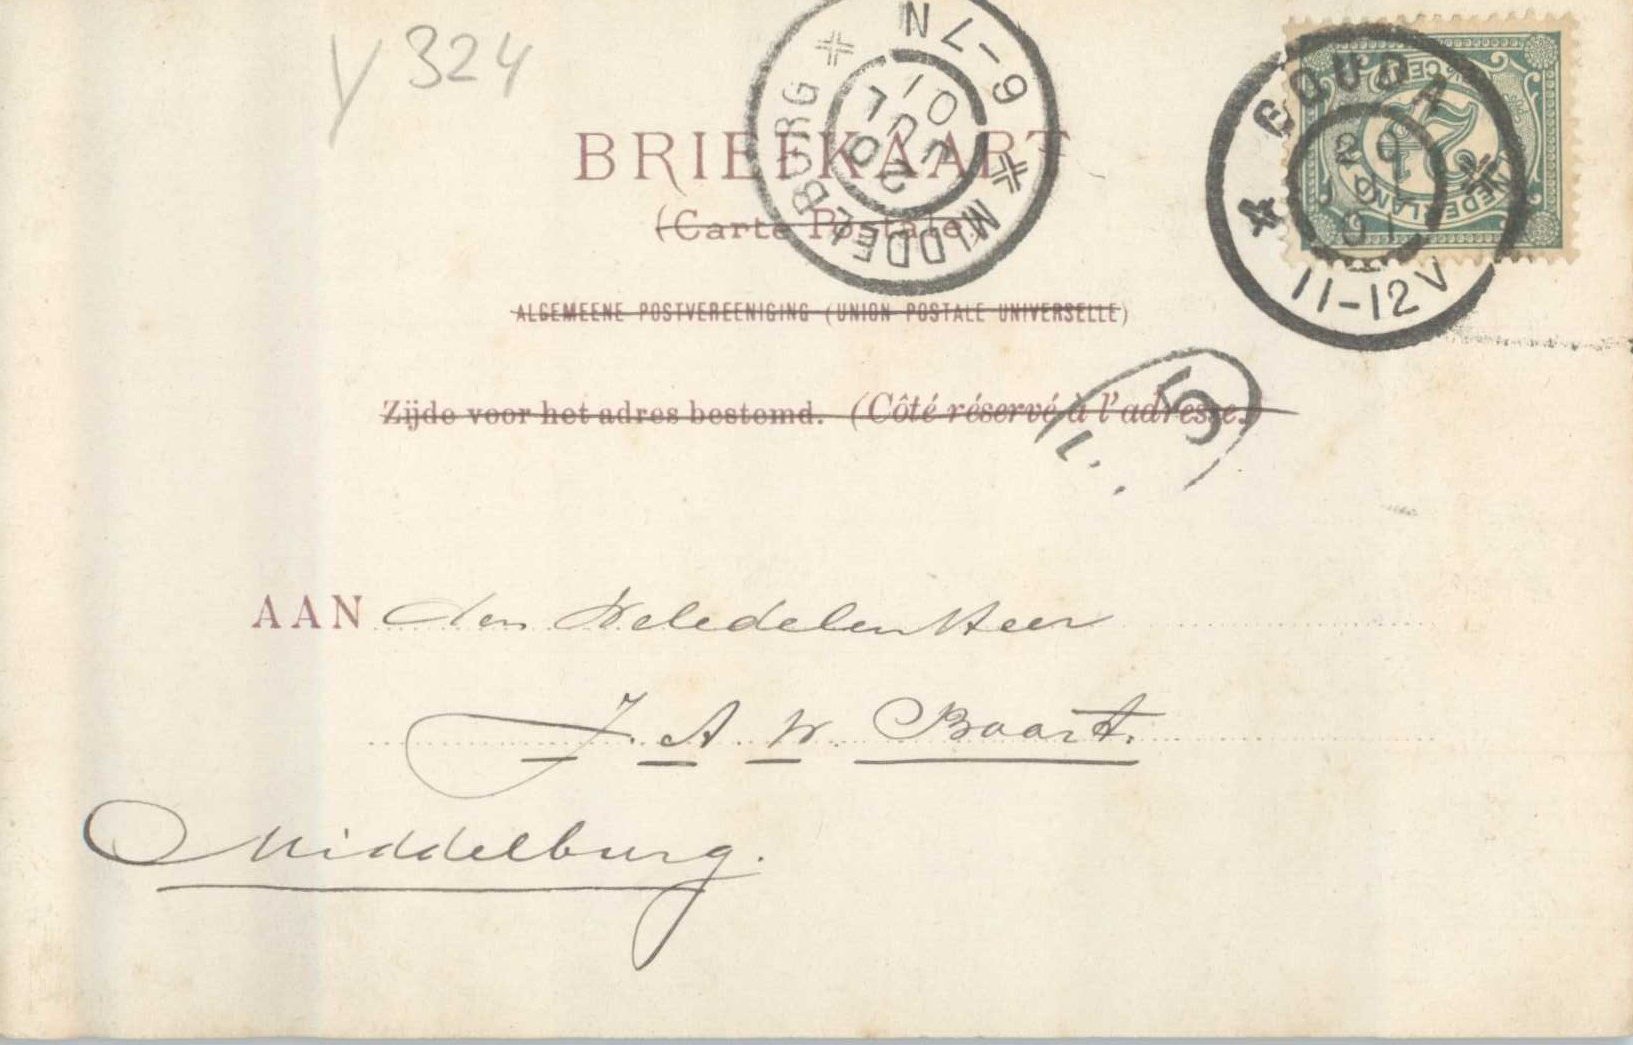 y 324
BRIEFKAART
(Carte Postale)
ALGEMEENE POSTVEREENIGING (UNION POSTALE UNIVERSELLE)
Zijde voor het adres bestemd. (Côté réservé à l'adresse.)
AAN den Weledelen Heer
J. A. W. Baart.
Middelburg.
MIDDELBURG
6-7N
20 JUL 01
GOUDA
11-12V
NEDERLAND
2½
5